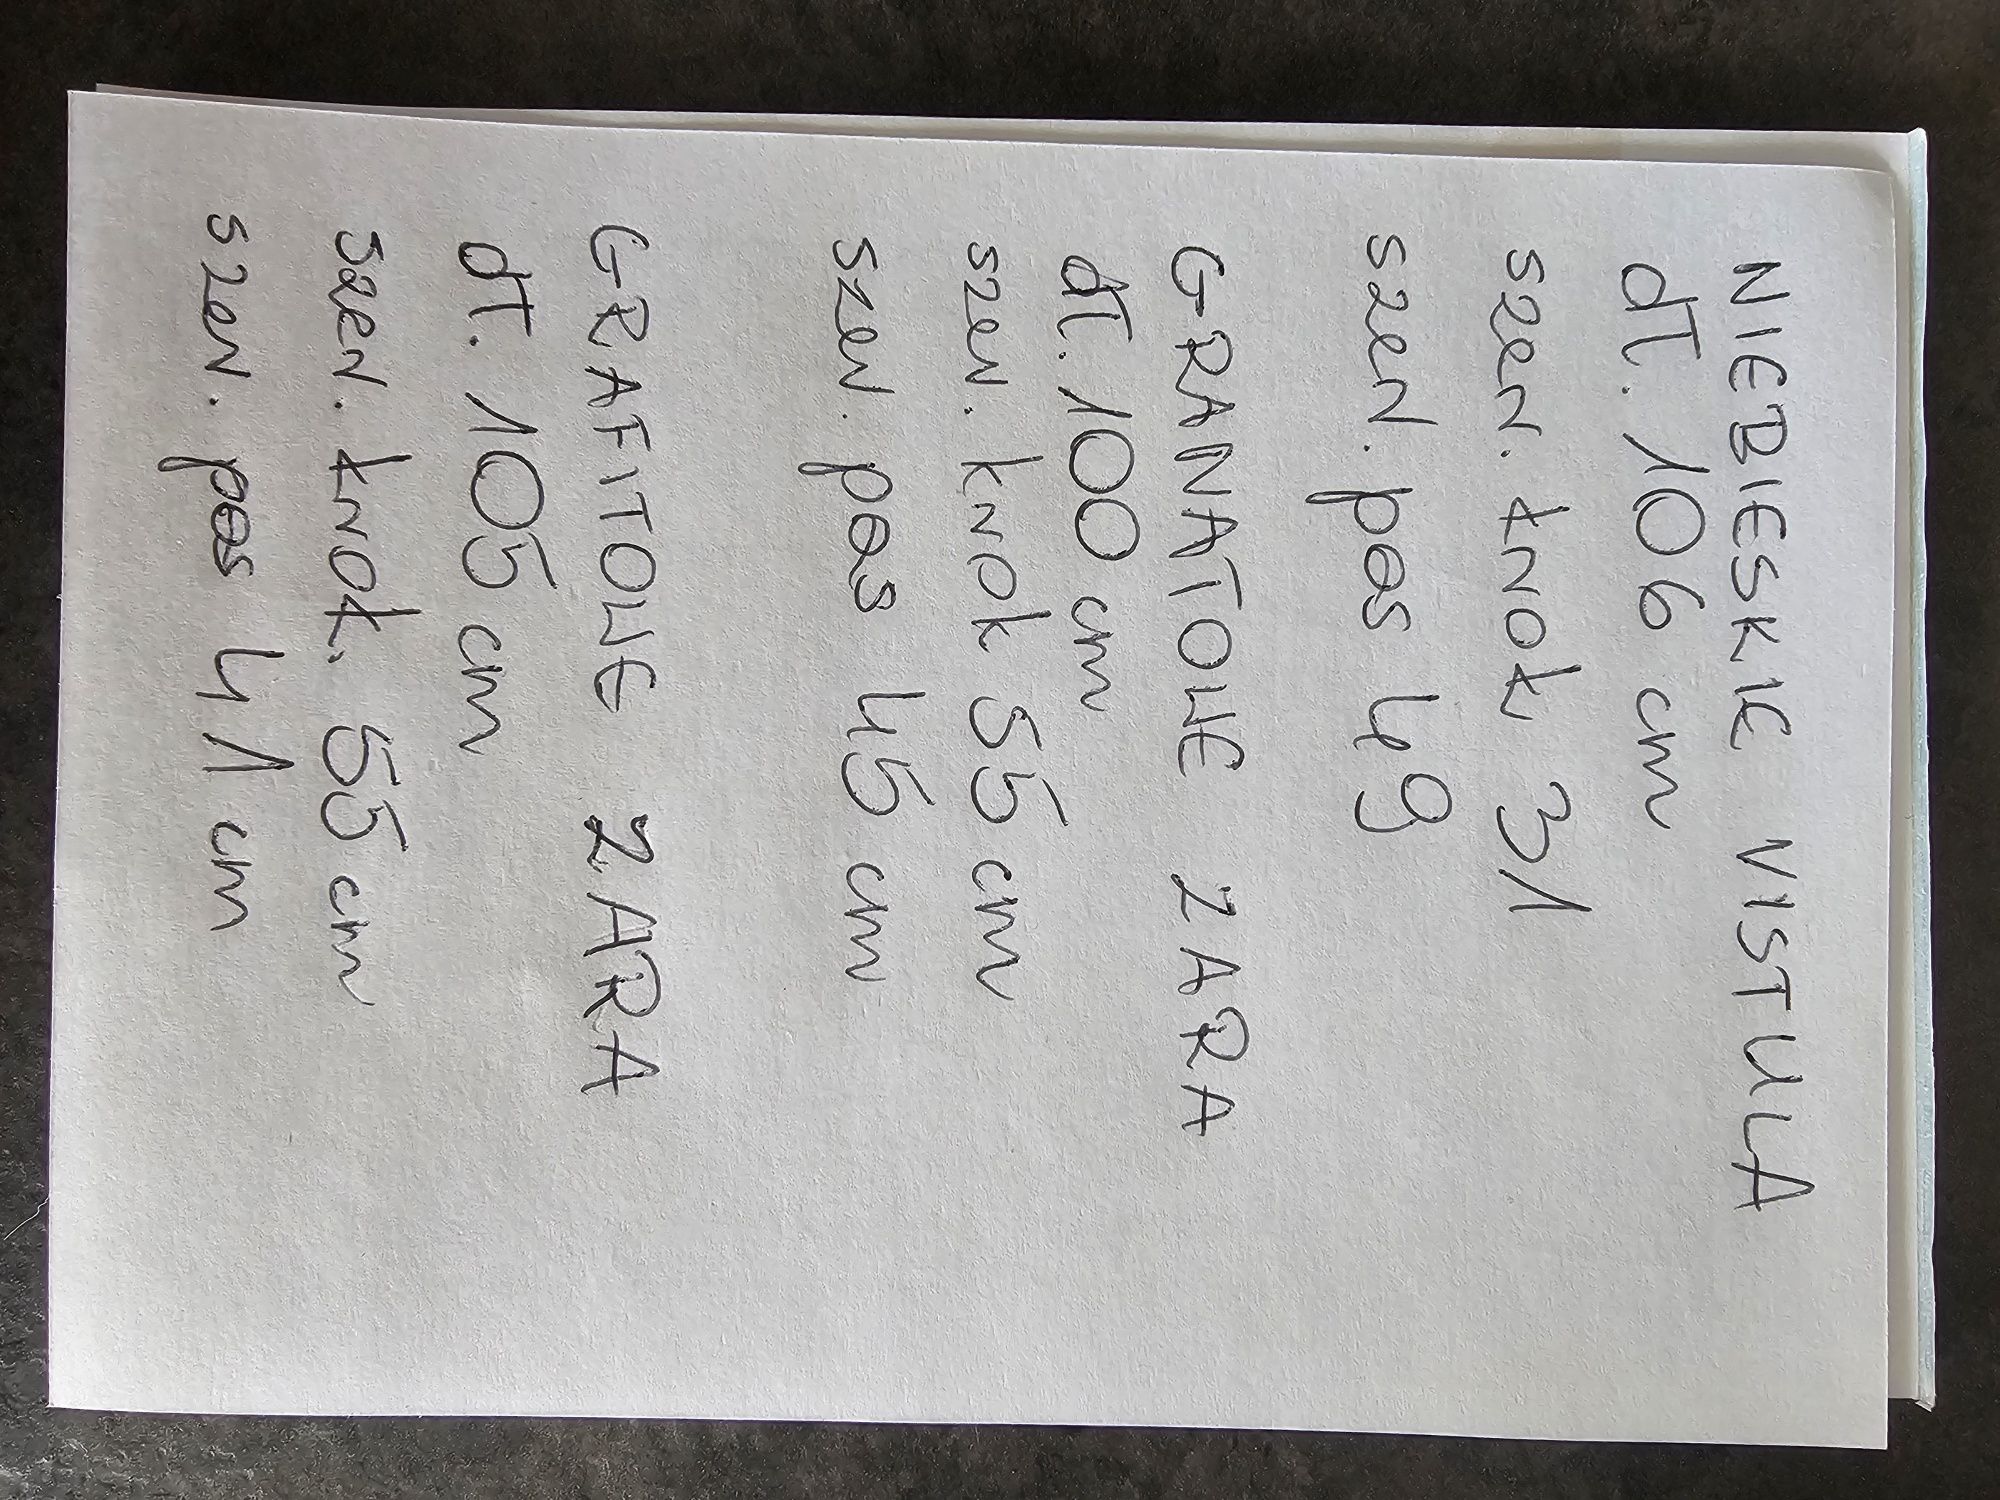 NIEBIESKIE VISTULA
dł. 106 cm
szer. krok 31
szer. pas 49
GRANATOWE ZARA
dł. 100 cm
szer. krok 55 cm
szer. pas 45 cm
GRAFITOWE ZARA
dł. 105 cm
szer. krok. 55 cm
szer. pas 41 cm